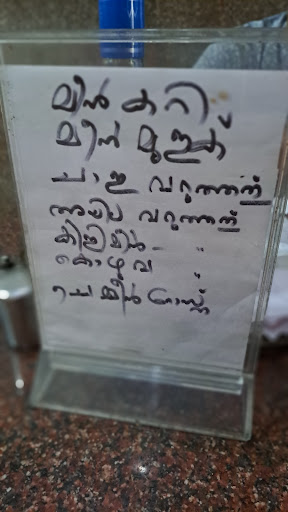 മീൻ കറി
മീൻ മുളക്
വറുത്തത്
അയില വറുത്തത്
കിളിമീൻ - "
കൊഴുവ "
ചെമ്മീൻ റോസ്റ്റ്